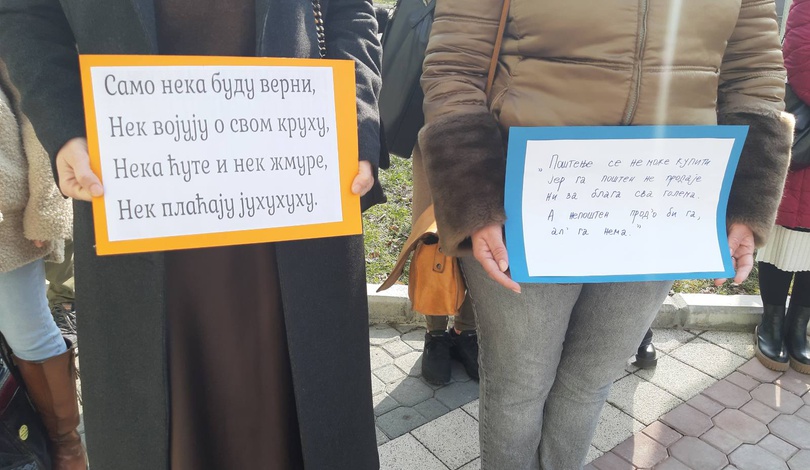 Само нека буду верни,
Нек војују о свом круху,
Нека ћуте и нек жмуре,
Нек плаћају јухухуху.
„Поштење се не може купити
јер га поштен не продаје
ни за блага сва голема.
А непоштен прод'о би га,
ал' га нема.“